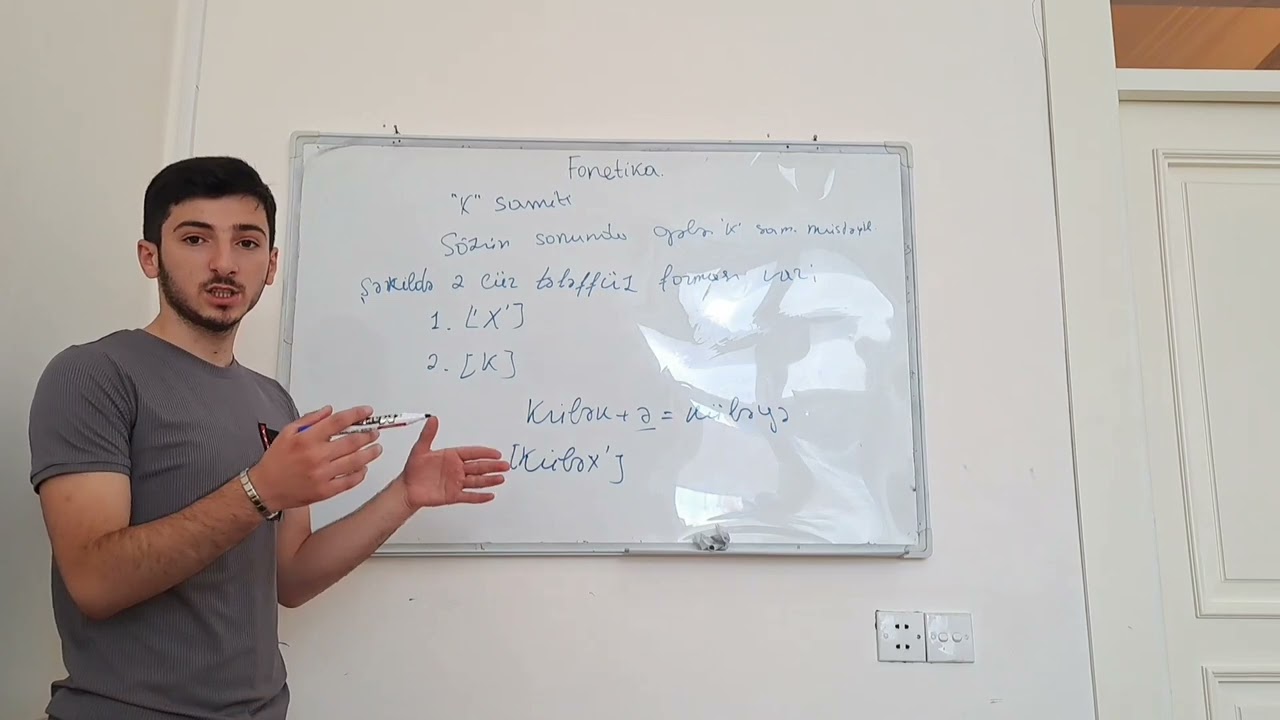 Fonetika.
"K" samiti
Sözün sonunda gələn "K" sam. müstəqil
Şəkildə 2 cür tələffüz forması var;
1. [X']
2. [K]
Külək + ə = küləyə
[Küləx']